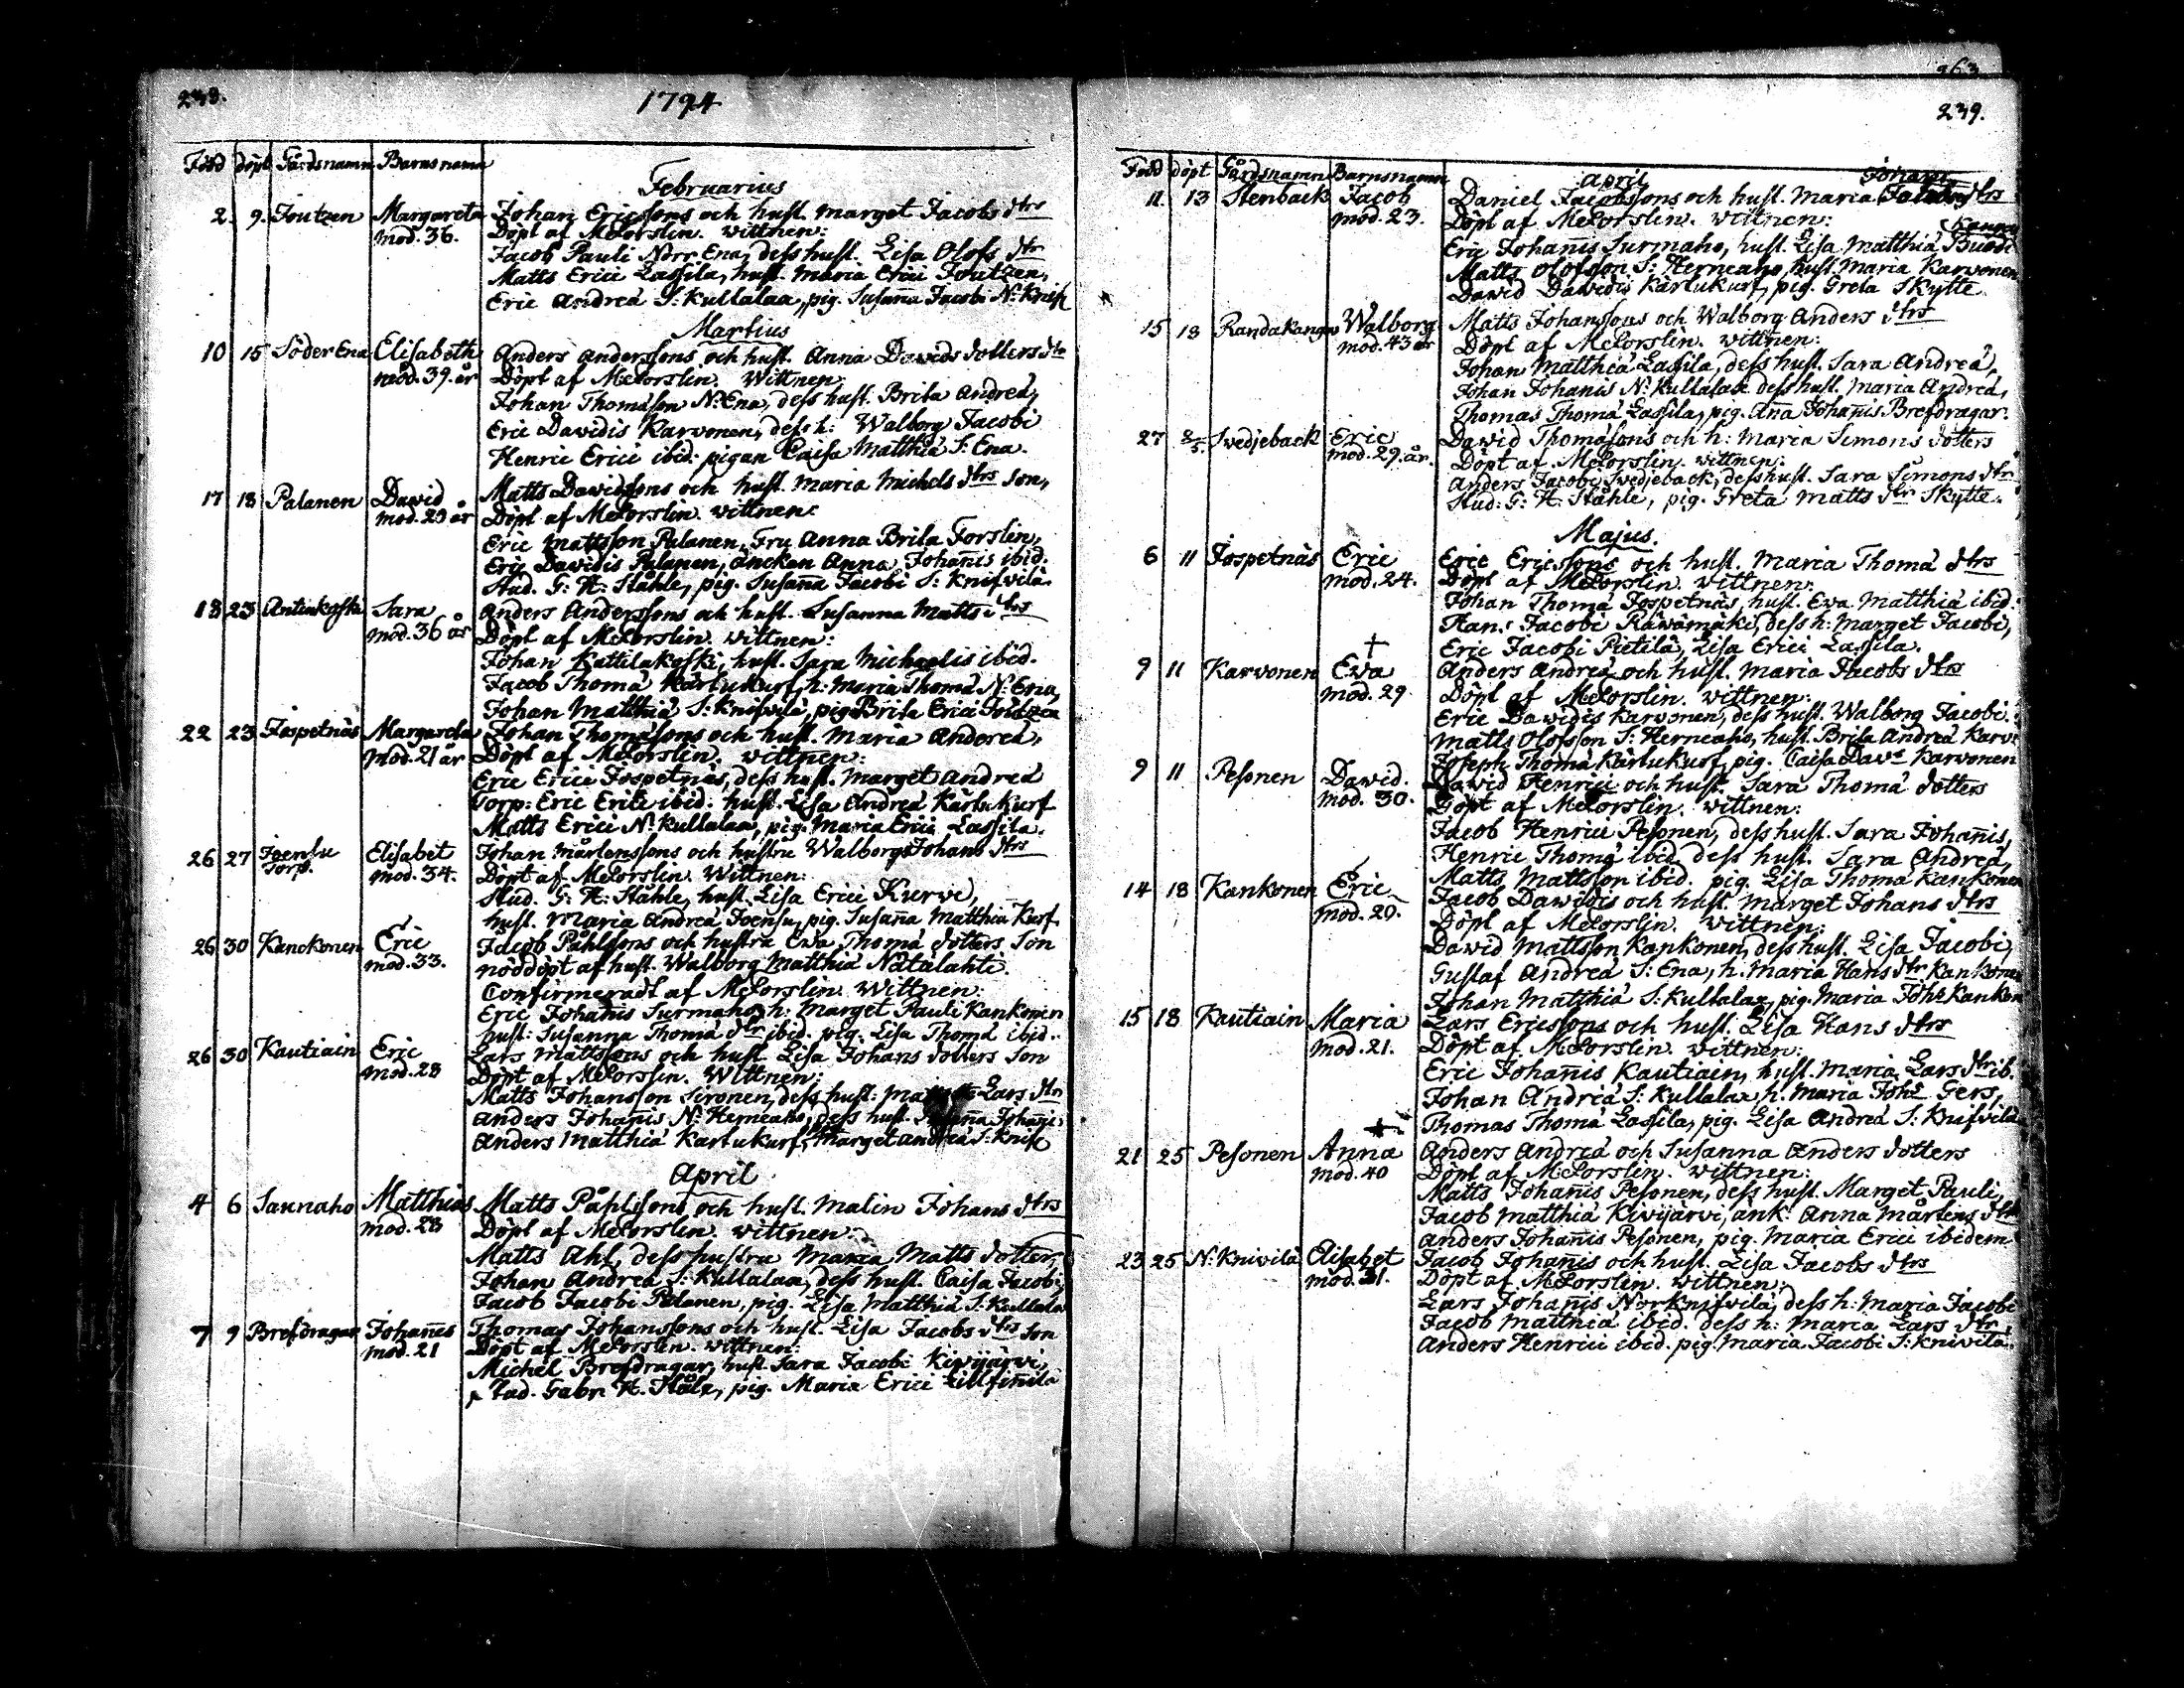 238.
1794
Född döpt Gårdsnamn Barns namn
Februarius
2. 9. Joutzen Margareta Johan Ericssons och hust. Marget Jacobs dtrs
mod. 36. Döpt af McForslin. vittnen:
Jacob Pauli Norr Ena, dess hust. Lisa Olofs dtr
Matts Erici Lassila, hust. Maria Erici Joutzen,
Eric Andreä S: Kullalaa, pig. Susaña Jacobi N: Knif
Martius
10 15 Söder Ena Elisabeth Anders Anderssons och hust. Anna Davids dotters dtr
mod. 39. år Döpt af McForslin. Wittnen
Johan Thomäson N: Ena, dess hust. Brita Andreä,
Eric Davidis Karvonen, dess h: Walborg Jacobi
Henric Erici ibid: pigan Caisa Matthiä S: Ena.
17 18 Palanen David Matts Davidsons och hust. Maria Michels dtrs son,
mod. 29 år Döpt af McForslin. vittnen:
Eric Mattsson Palanen, Fru Anna Brita Forslin,
Eric Davidis Palanen, änckan Anna Johañis ibid:
Stud. G: H: Ståhle, pig. Susaña Jacobi S: Knifvilä.
18 23 Antinkoski Sara Anders Anderssons och hust. Susanna Matts dtrs
mod. 36 år Döpt af McForslin. vittnen:
Johan Kattilakoski, hust. Sara Michaelis ibid.
Jacob Thomä Kärtukurf, h: Maria Thomä N: Ena,
Johan Matthiä S: Knifvilä, pig. Brita Erici Joutzen
22 23 Jospetnäs Margareta Johan Thomäsons och hust. Maria Andersä,
mod. 21 år Döpt af McForslin. vittnen:
Eric Erici Jospetnäs, dess hust. Marget Andreä
Torp: Eric Erici ibid. hust. Lisa Andreä Kärtukurf
Matts Erici N: Kullalaa, pig. Maria Erici Lassila.
26 27 Joensu Elisabet Johan Mårtenssons och hustru Walborgs Johans dtrs
Torp. mod. 34. Döpt af McForslin. Wittnen:
Stud. G: H: Ståhle, hust. Lisa Erici Kurvi,
hust. Maria Andreä Joensu, pig. Susaña Matthiä Kurf.
26 30 Kanckonen Eric Jacob Påhlssons och hustru Eva Thomä dotters son
mod. 33. nöddöpt af hust. Walborg Matthiä Nätälahti.
Confirmeradt af McForslin. Wittnen:
Eric Johañis Surmaho, h: Marget Pauli Kankonen
hust: Susanna Thomä dtr ibid. pig. Lisa Thomä ibid..
26 30 Kautiain Eric Lars Mattssons och hust Lisa Johans dotters son
mod. 28 Döpt af McForslin. Wittnen:
Matts Johansson Sironen, dess hust: Lars dtr
Anders Johañis N: Herneaho, dess hust. Johañis
Anders Matthiä Kartukurf, Marget Andreä S: Knif
April
4 6 Saunaho Matthias Matts Påhlssons och hust. Malin Johans dtrs
mod. 28 Döpt af McForslin. vittnen:
Matts Ahl, dess hustru Maria Matts dotter,
Johan Andreä S: Kullalaa, dess hust. Caisa Jacobi,
Jacob Jacobi Palanen, pig. Lisa Matthiä S: Kullala
7 9 Brefdragar Johañes Thomas Johanssons och hust. Lisa Jacobs dtrs son
mod. 21 Döpt af McForslin. vittnen:
Michel Brefdragar, hust. Sara Jacobi Kivijärvi,
Stud. Gabr. H. Ståle, pig. Maria Erici Lillfiñilä
263
239.
Född döpt Gårdsnamn Barnsnamn
April Johans
11. 13 Stenback Jacob Daniel Jacobssons och hust. Maria dtrs
mod. 23. Döpt af McForslin. vittnen:
Eric Johañis Surmaho, hust. Lisa Matthiä
Matts Olofsson S: Herneaho, hust. Maria Karvonen
David Davidis Kärtukurf, pig. Greta Skytte.
15 18 Randakangas Walborg Matts Johanssons och Walborg Anders dtrs
mod. 43 år Döpt af McForslin. vittnen:
Johan Matthiä Lassila, dess hust. Sara Andreä,
Johan Johañis N: Kullalaa dess hust. Maria Andreä,
Thomas Thomä Lassila, pig. Aña Johañis Brefdragar.
27 2/5. Svedjeback Eric David Thomäsons och h: Maria Simons dotters
mod. 29. år. Döpt af McForslin. vittnen:
Anders Jacobi Svedjeback, dess hust. Sara Simons dtr
Stud: G: H: Ståhle, pig. Greta Matts dtr Skytte.
Majus.
6 11 Jospetnäs Eric Eric Ericssons och hust. Maria Thomä dtrs
mod. 24. Döpt af McForslin. vittnen:
Johan Thomä Jospetnäs, hust. Eva Matthiä ibid.
Han: Jacobi Räwämäki, dess h: Marget Jacobi,
Eric Jacobi Pietilä, Lisa Erici Lassila.
†
9 11 Karvonen Eva Anders Andreä och hust. Maria Jacobs dtrs
mod. 29 Döpt af McForslin. vittnen:
Eric Davidis Karvonen, dess hust. Walborg Jacobi.
Matts Olofsson S: Herneaho, hust. Brita Andreä Karv:
Joseph Thomä Kärtukurf, pig. Caisa Dav: Karvonen
9 11 Pesonen David David Henrici och hust. Sara Thomä dotters
mod. 30. Döpt af McForslin. vittnen:
Jacob Henrici Pesonen, dess hust. Sara Johañis,
Henric Thomä ibid. dess hust. Sara Andreä,
Matts Mattsson ibid. pig. Lisa Thomä Kankonen
14 18 Kankonen Eric Jacob Davidis och hust. Marget Johans dtrs
mod. 20. Döpt af McForslin. vittnen:
David Mattsson Kankonen, dess hust. Lisa Jacobi,
Gustaf Andreä S: Ena, h. Maria Hans dtr Kankonen
Johan Matthiä S: Kullalaa, pig. Maria Johs Kankon
15 18 Kautiain Maria Lars Ericssons och hust. Lisa Hans dtrs
mod. 21. Döpt af McForslin. vittnen:
Eric Johañis Kautiain, hust. Maria Lars dtr ib.
Johan Andreä S: Kullalaa h. Maria Johs Gers,
Thomas Thomä Lassila, pig. Lisa Andreä S: Knifvilä
†
21 25 Pesonen Anna Anders Andreä och Susanna Anders dotters
mod. 40 Döpt af McForslin. vittnen:
Matts Johañis Pesonen, dess hust. Marget Pauli,
Jacob Matthiä Kivijärvi, ank: Anna Mårtens dtr
Anders Johañis Pesonen, pig. Maria Erici ibidem
23 25 N: Knivilä Elisabet Jacob Johañis och hust. Lisa Jacobs dtrs
mod. 31. Döpt af McForslin. vittnen:
Lars Johañis NorKnifvilä, dess h: Maria Jacobi
Jacob Matthiä ibid. dess h: Maria Lars dtr,
Anders Henrici ibid. pig. Maria Jacobi S: Knivilä.